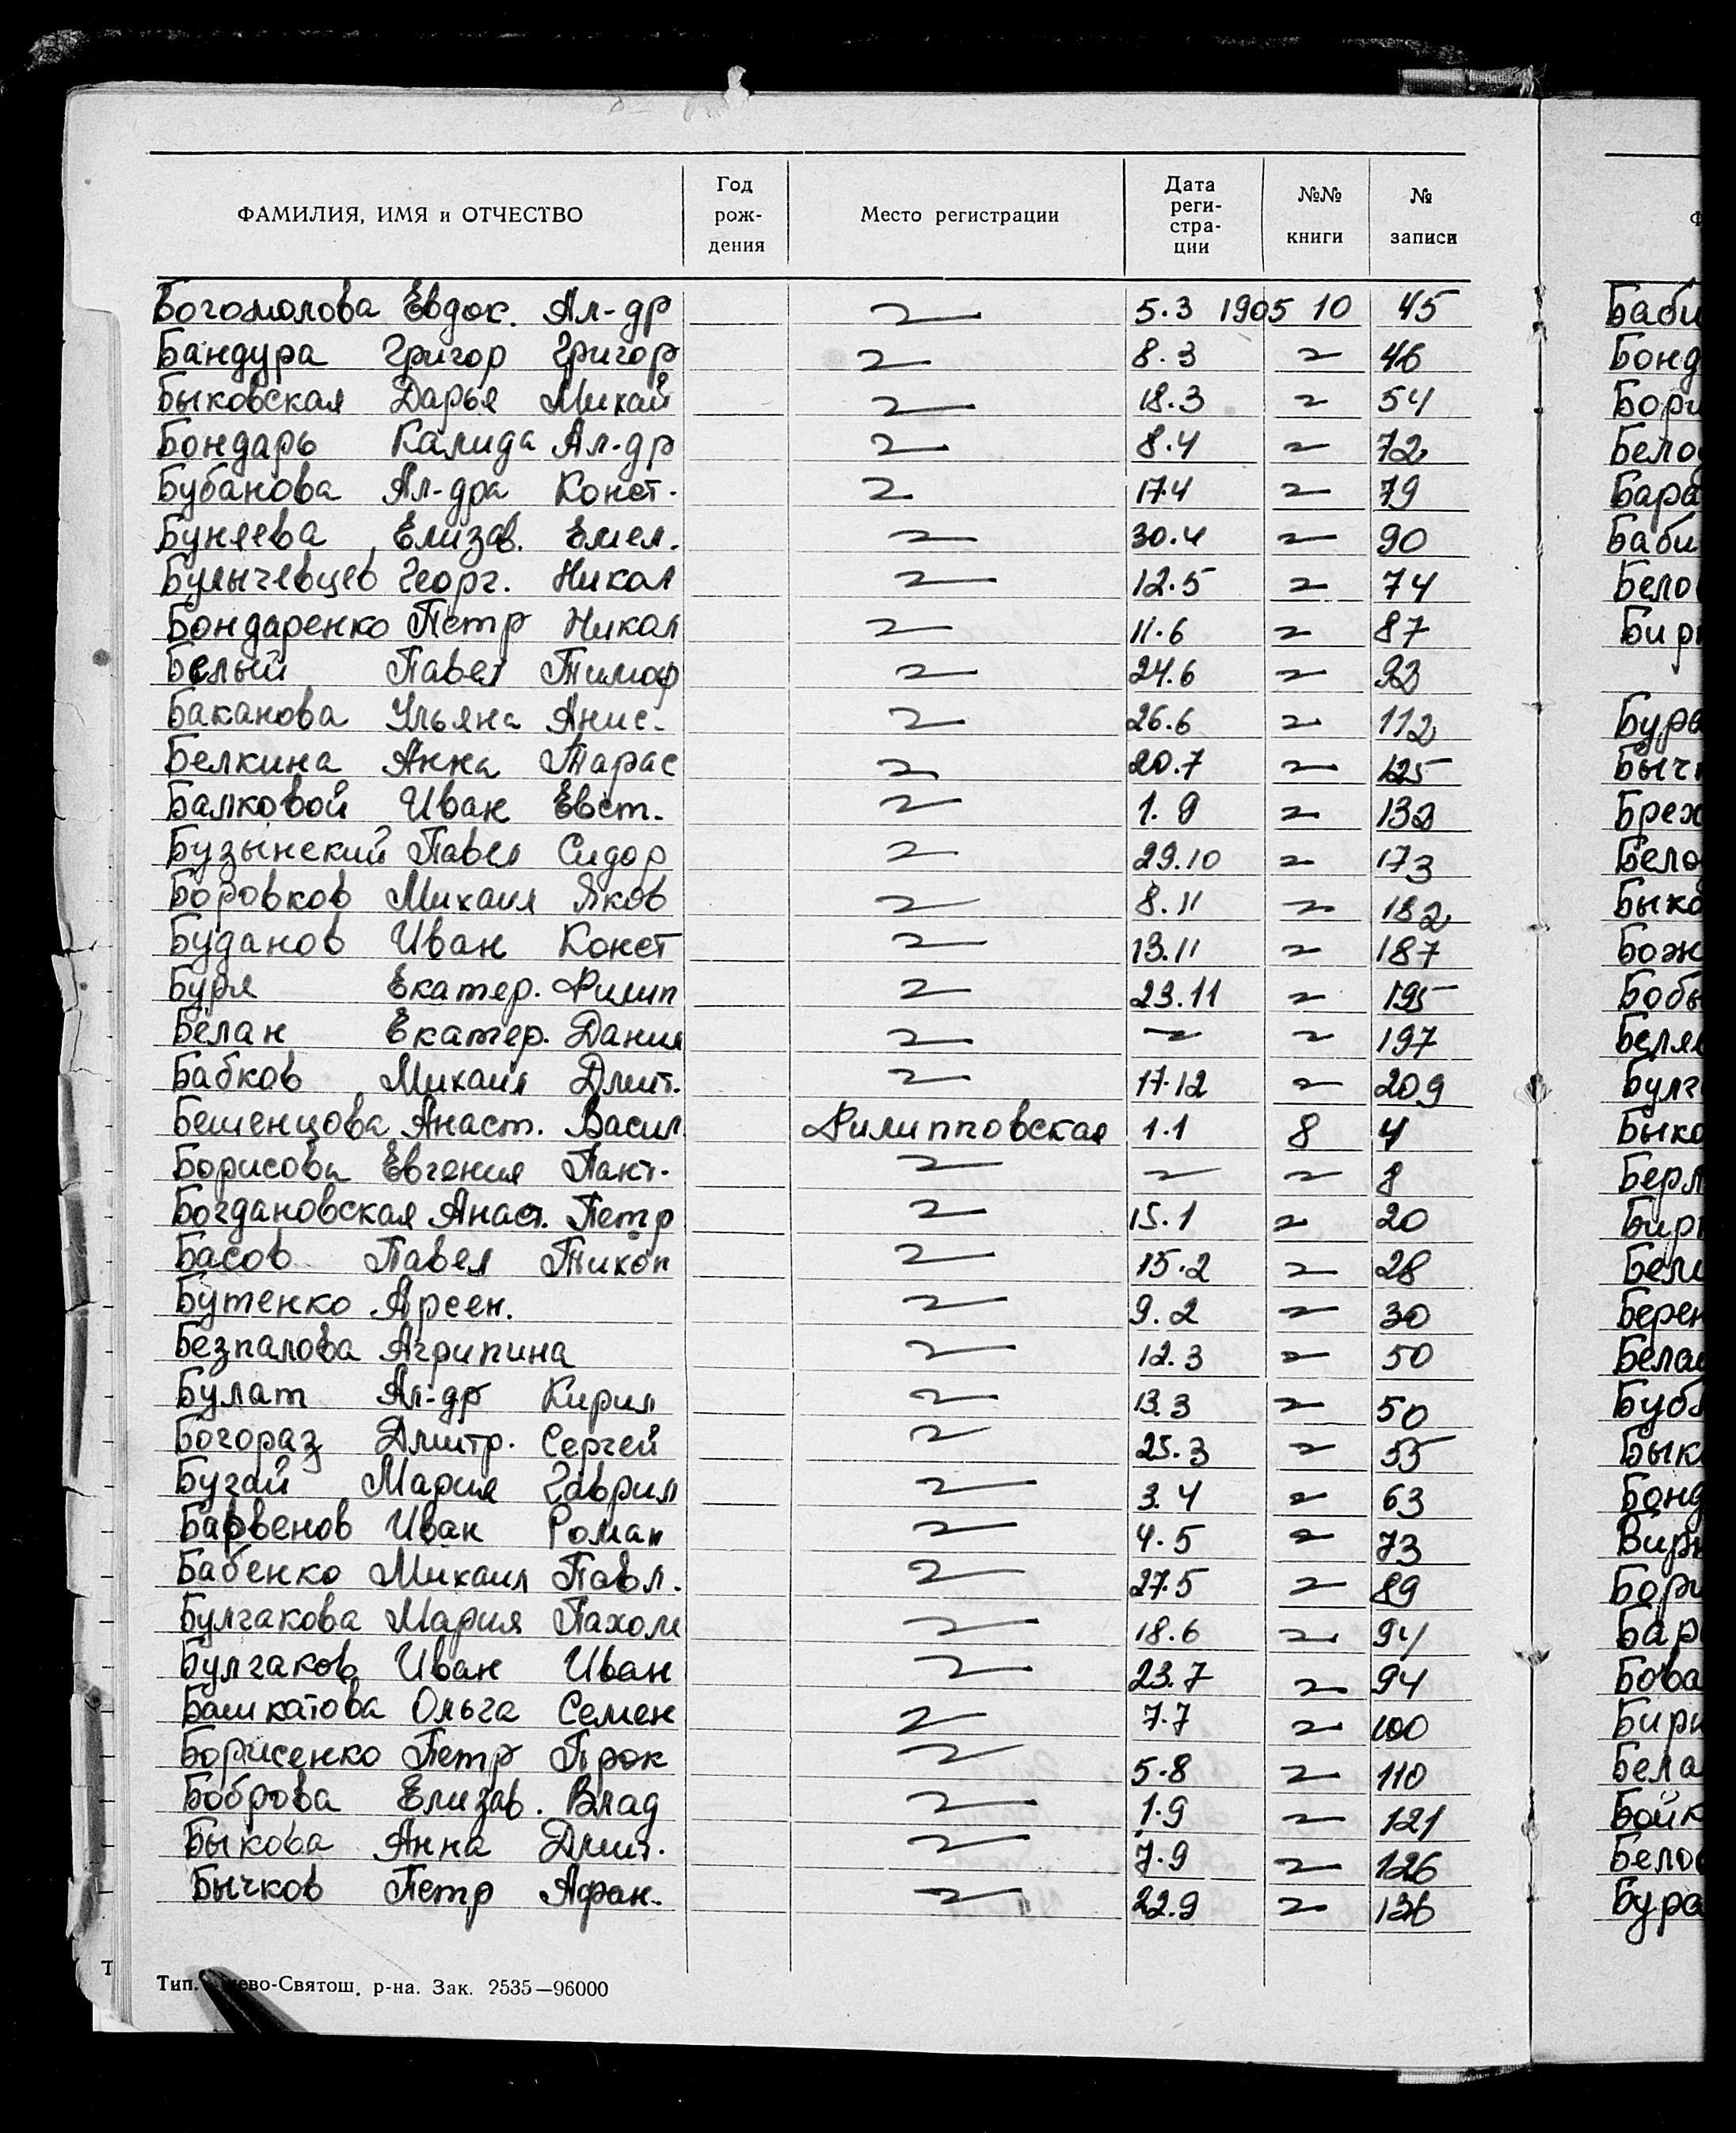 ФАМИЛИЯ, ИМЯ и ОТЧЕСТВО Год рож- дения Место регистрации Дата реги- стра- ции №№ книги № записи
Богомолова Евдок. Ал-др 5.3 1905 10 45 Баби
Бандура Григор Григор 8.3 46 Бонд
Быковская Дарья Михай 18.3 54 Бори
Бондарь Калида Ал-др 8.4 72 Бело
Бубанова Ал-дра Конст. 17.4 79 Бара
Бунеева Елизав. Емел. 30.4 90 Баби
Булычевцев Георг. Никол 12.5 74 Бело
Бондаренко Петр Никол 11.6 87 Бирю
Белый Павел Тимоф 24.6 93
Баканова Ульяна Анис. 26.6 112 Буры
Белкина Анна Тарас 20.7 125 Быч
Балковой Иван Евст. 1.9 132 Брех
Бузынский Павел Сидор 29.10 173 Бело
Боровков Михаил Яков 8.11 182 Быко
Буданов Иван Конст 13.11 187 Бож
Буря Екатер. Филип 23.11 195 Бобы
Белан Екатер. Данил 197 Беля
Бабков Михаил Дмит. 17.12 209 Булг
Бешенцова Анаст. Васил Филипповская 1.1 8 4 Быко
Борисова Евгения Пант. 8 Берл
Богдановская Анаст. Петр 15.1 20 Бир
Басов Павел Тихон 15.2 28 Бел
Бутенко Арсен. 9.2 30 Берен
Безпалова Агрипина 12.3 50 Бела
Булат Ал-др Кирил 13.3 50 Буб
Богораз Дмитр. Сергей 25.3 55 Бык
Бугай Мария Гаврил 3.4 63 Бонд
Барвенов Иван Роман 4.5 73 Бир
Бабенко Михаил Павл. 27.5 89 Бори
Булгакова Мария Пахом 18.6 94 Бар
Булгаков Иван Иван 23.7 94 Бова
Башкатова Ольга Семен 7.7 100 Бир
Борисенко Петр Прок 5.8 110 Бела
Боброва Елизав. Влад 1.9 121 Бойк
Быкова Анна Дмит. 7.9 126 Бело
Бычков Петр Афан. 22.9 136 Бура
Тип. ево-Святош. р-на. Зак. 2535—96000